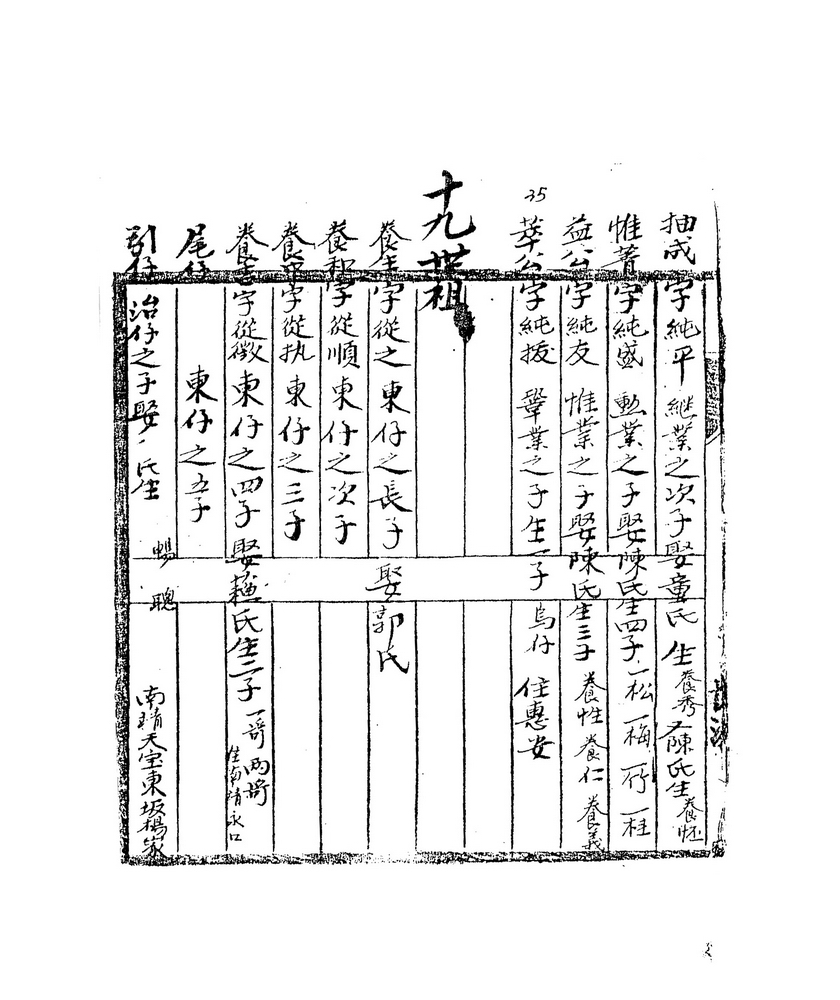 抽成字純平 継業之次子娶童氏 生養秀又陳氏生養恠
惟菁字純盛 勲業之子娶陳氏生四子 一松 一梅 一竹 一桂
益公字純友 惟業之子娶陳氏生三子 養性 養仁 養義
35
萃公字純拔 鞏業之子生一子 烏仔 住惠安
十九世祖
養生字從之 東仔之長子 娶郭氏
養和字從順 東仔之次子
養中字從执 東仔之三子
養志字從徵 東仔之四子 娶氏生二子 一奇 兩奇
住南靖永口
尾仔 東仔之五子
引仔 治仔之子娶 氏生
暢
聰
南靖天宝東坂楊家